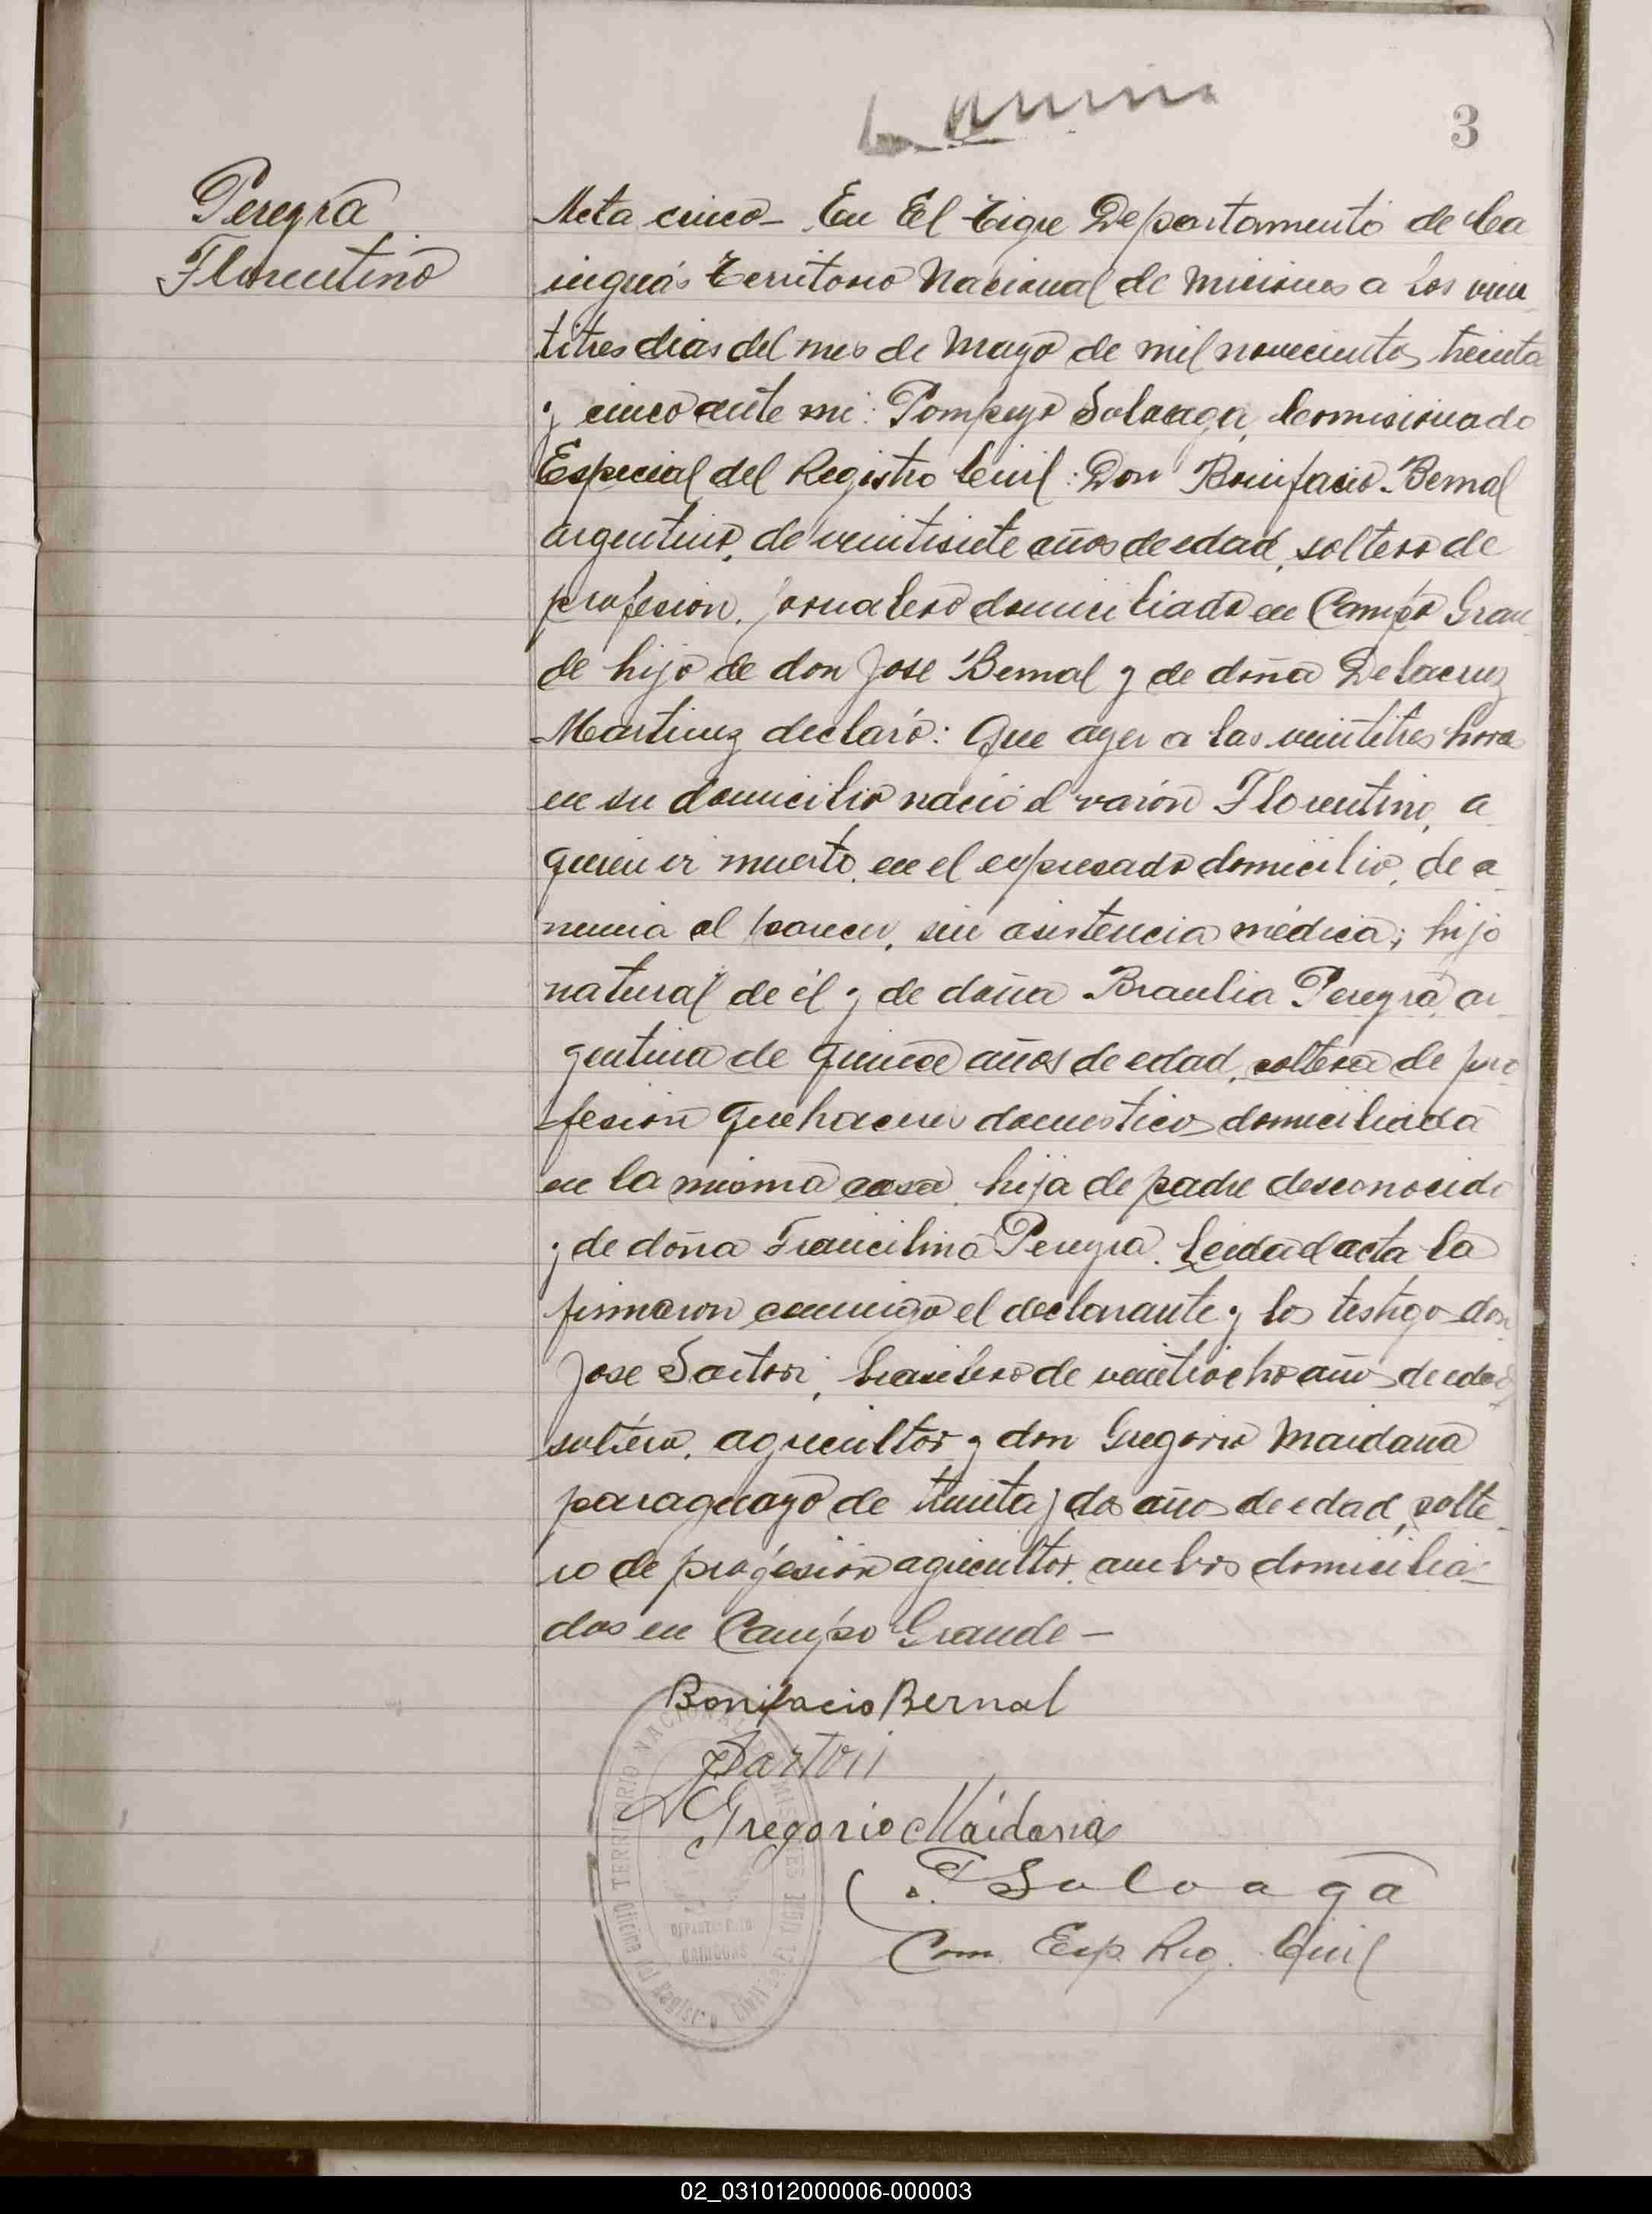 3
Peregra
Florentino
Acta cinco - En El Tigre Departamento de Ca
inguás Territorio Nacional de Misiones a los vein
titres dias del mes de Mayo de mil novecientos treinta
y cinco ante mi: Pompeyo Soloaga, Comisionado
Especial del Registro Civil: Don Bonifacio Bernal
argentino, de veintisiete años de edad, soltero de
profesion, jornalero domiciliado en Campo Gran
de hijo de don Jose Bernal y de doña Delacruz
Martinez declaró: Que ayer a las veintitres horas
en su domicilio nació el varón Florentino, a
quien vi muerto, en el expresado domicilio, de a
nemia al parecer, sin asistencia médica; hijo
natural de él y de doña Braulia Peregra, ar
gentina de quince años de edad, soltera de pro
fesion quehaceres domesticos domiciliada
en la misma casa, hija de padre desconocido
y de doña Francilina Peregra. Leida el acta la
firmaron conmigo el declarante y los testigos don
Jose Sartori, brasilero de veintiocho años de edad
soltero, agricultor y don Gregorio Maidana
paraguayo de treinta y dos años de edad, solte
ro de profesion agricultor, ambos domicilia
dos en Campo Grande -
Bonifacio Bernal
JSartori
Gregorio Maidana
P Soloaga
Com. Esp. Reg. Civil
TERRITORIO NACIONAL DE MISIONES
Oficina del Registro Civil
DEPARTAMENTO
CAINGUAS
02_031012000006-000003